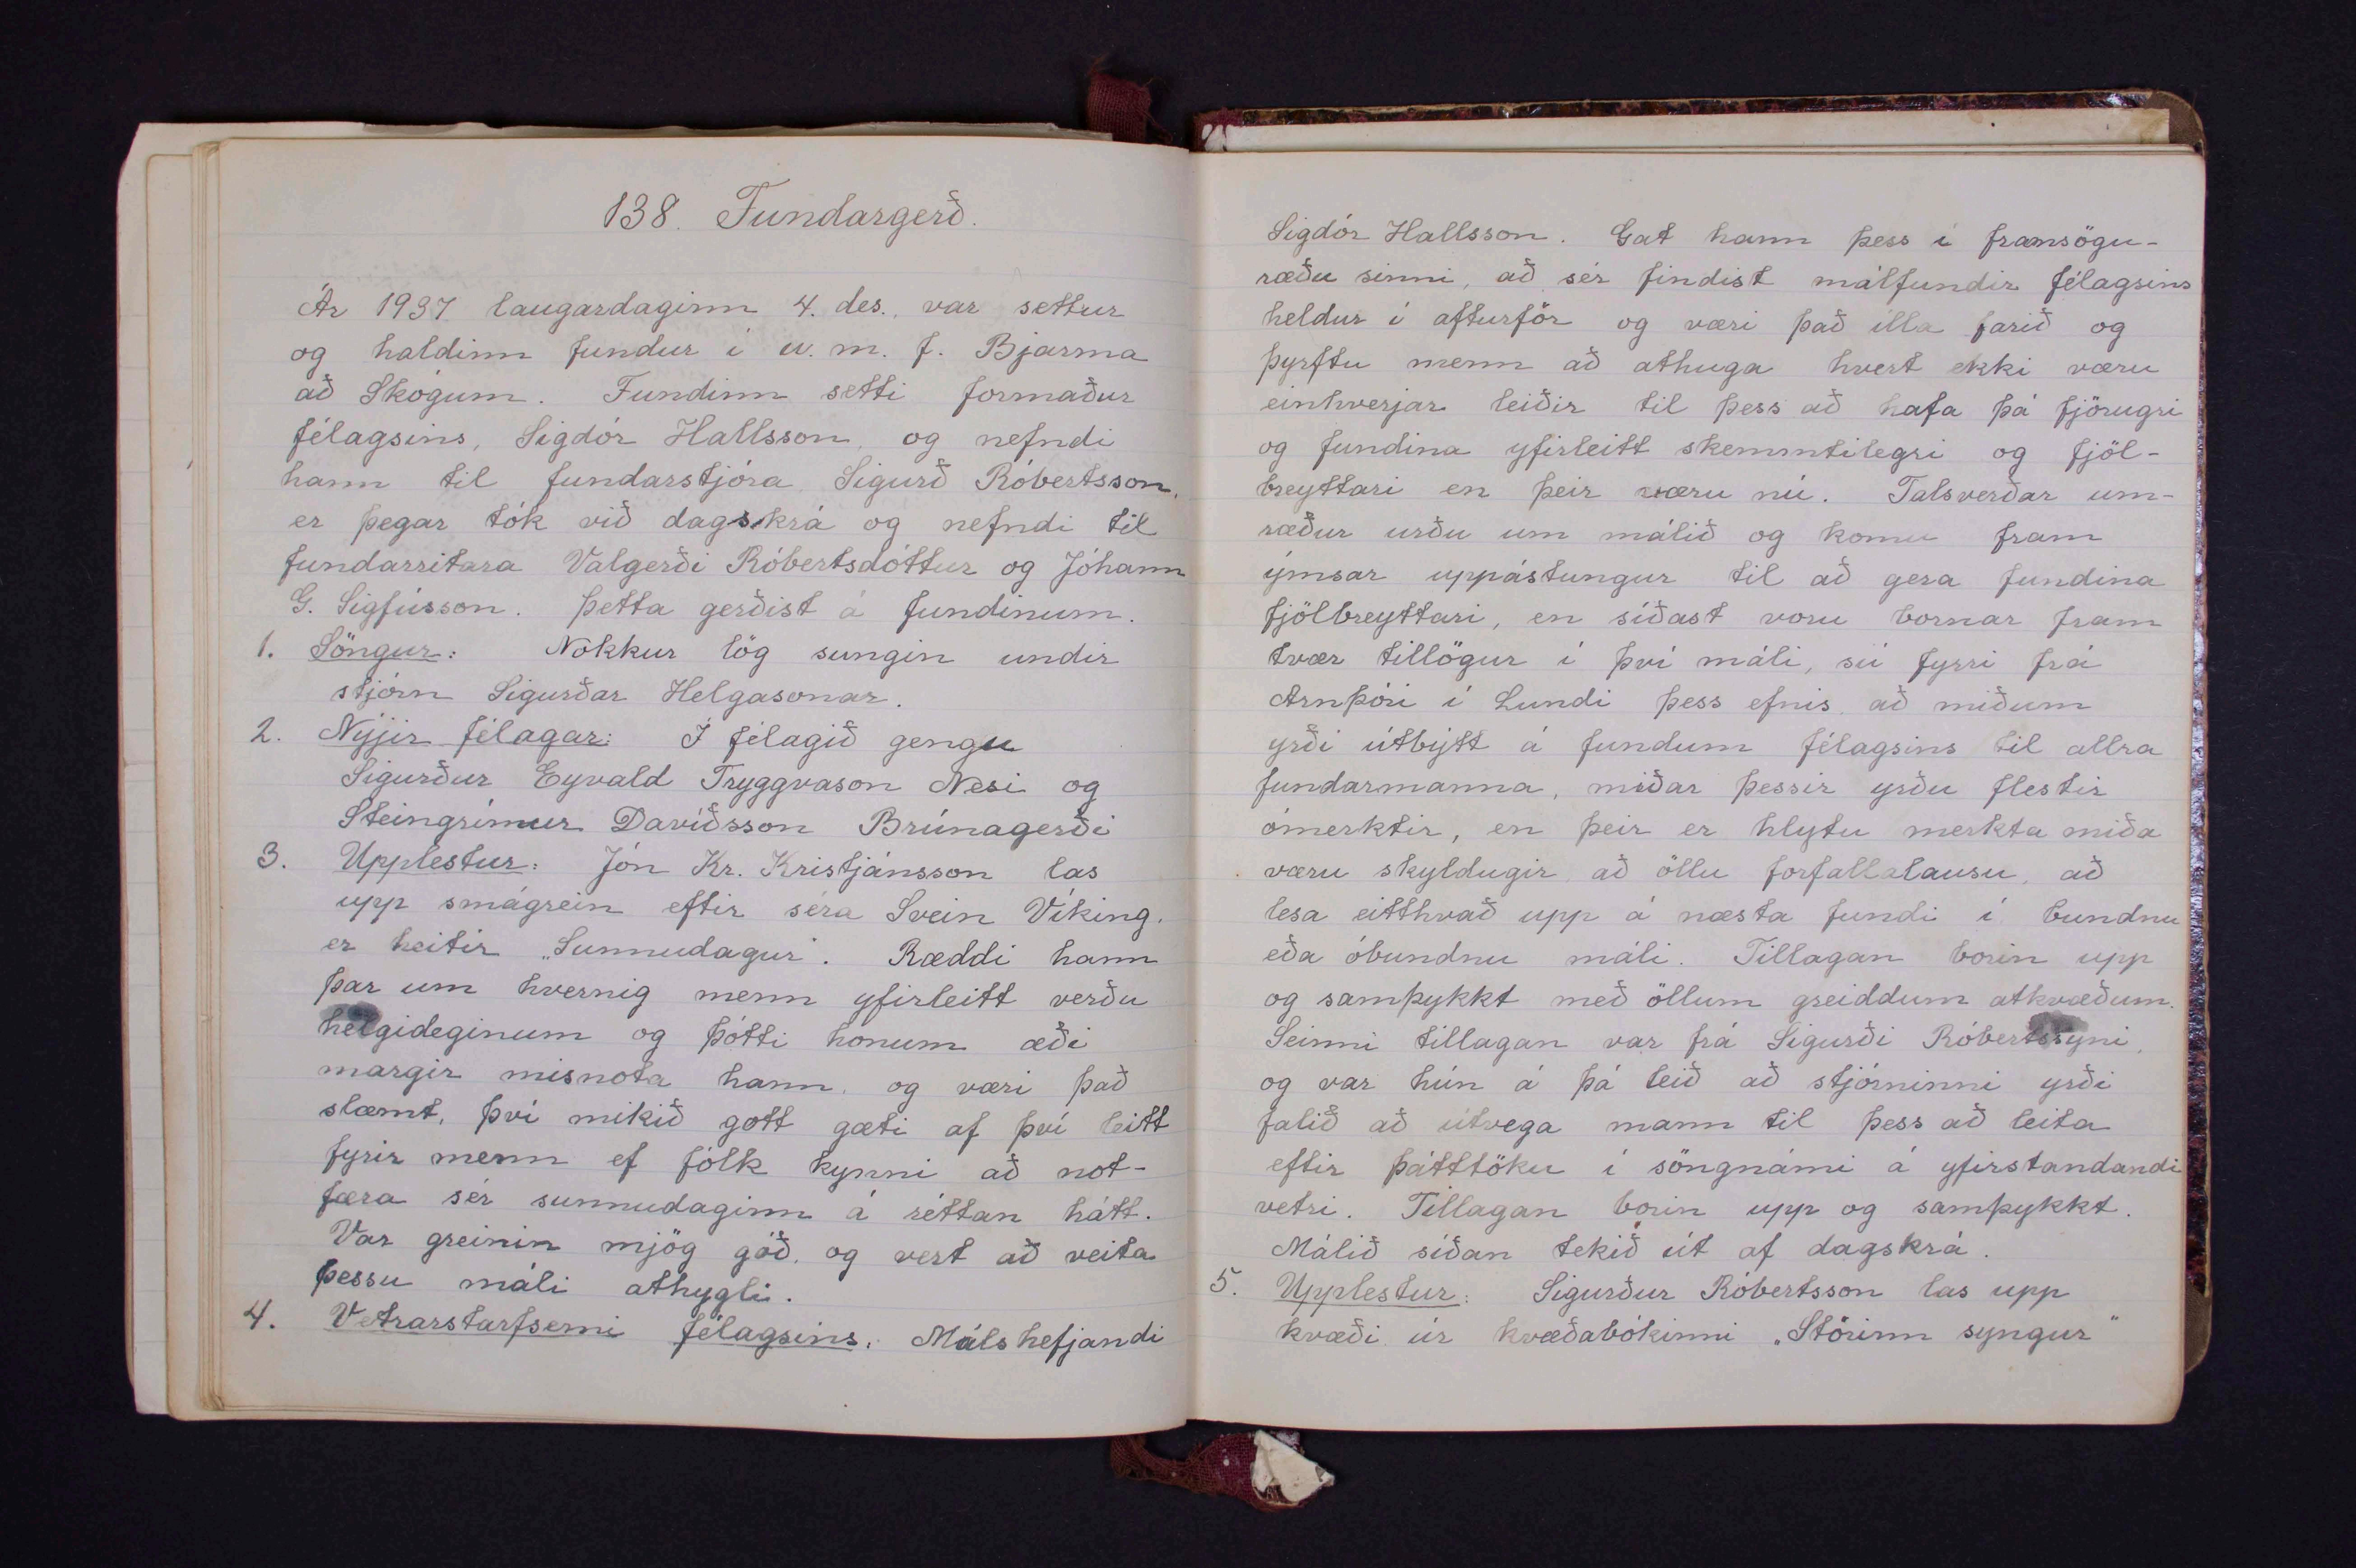 138. Fundargerð.
Ár 1937 laugardaginn 4. des., var settur
og haldinn fundur í u. m. f. Bjarma
að Skógum. Fundinn setti formaður
félagsins, Sigdór Hallsson, og nefndi
hann til fundarstjóra Sigurð Róbertsson,
er þegar tók við dagskrá og nefndi til
fundarritara Valgerði Róbertsdóttur og Jóhann
G. Sigfússon. Þetta gerðist á fundinum.
1. Söngur: Nokkur lög sungin undir
stjórn Sigurðar Helgasonar.
2. Nýjir félagar: Í félagið gengu
Sigurður Eyvald Tryggvason Nesi og
Steingrímur Davíðsson Brúnagerði
3. Upplestur: Jón Kr. Kristjánsson las
upp smágrein eftir séra Svein Víking,
er heitir „Sunnudagur". Ræddi hann
þar um hvernig menn yfirleitt verðu
helgideginum og þótti honum æði
margir misnota hann, og væri það
slæmt, því mikið gott gæti af því leitt
fyrir menn ef fólk kynni að not-
færa sér sunnudaginn á réttan hátt.
Var greinin mjög góð, og vert að veita
þessu máli athygli.
4. Vetrarstarfsemi félagsins: Málshefjandi
Sigdór Hallsson. Gat hann þess í framsögu-
ræðu sinni, að sér findist málfundir félagsins
heldur í afturför og væri það illa farið og
þyrftu menn að athuga hvert ekki væru
einhverjar leiðir til þess að hafa þá fjörugri
og fundina yfirleitt skemmtilegri og fjöl-
breyttari en þeir væru nú. Talsverðar um-
ræður urðu um málið og komu fram
ýmsar uppástungur til að gera fundina
fjölbreyttari, en síðast voru bornar fram
tvær tillögur í því máli, sú fyrri frá
Arnþóri í Lundi þess efnis, að miðum
yrði útbýtt á fundum félagsins til allra
fundarmanna, miðar þessir yrðu flestir
ómerktir, en þeir er hlytu merkta miða
væru skyldugir, að öllu forfallalausu, að
lesa eitthvað upp á næsta fundi í bundnu
eða óbundnu máli. Tillagan borin upp
og samþykkt með öllum greiddum atkvæðum.
Seinni tillagan var frá Sigurði Róbertssyni,
og var hún á þá leið að stjórninni yrði
falið að útvega mann til þess að leita
eftir þátttöku í söngnámi á yfirstandandi
vetri. Tillagan borin upp og samþykkt.
Málið síðan tekið út af dagskrá.
5. Upplestur: Sigurður Róbertsson las upp
kvæði úr kvæðabókinni „Störinn syngur"